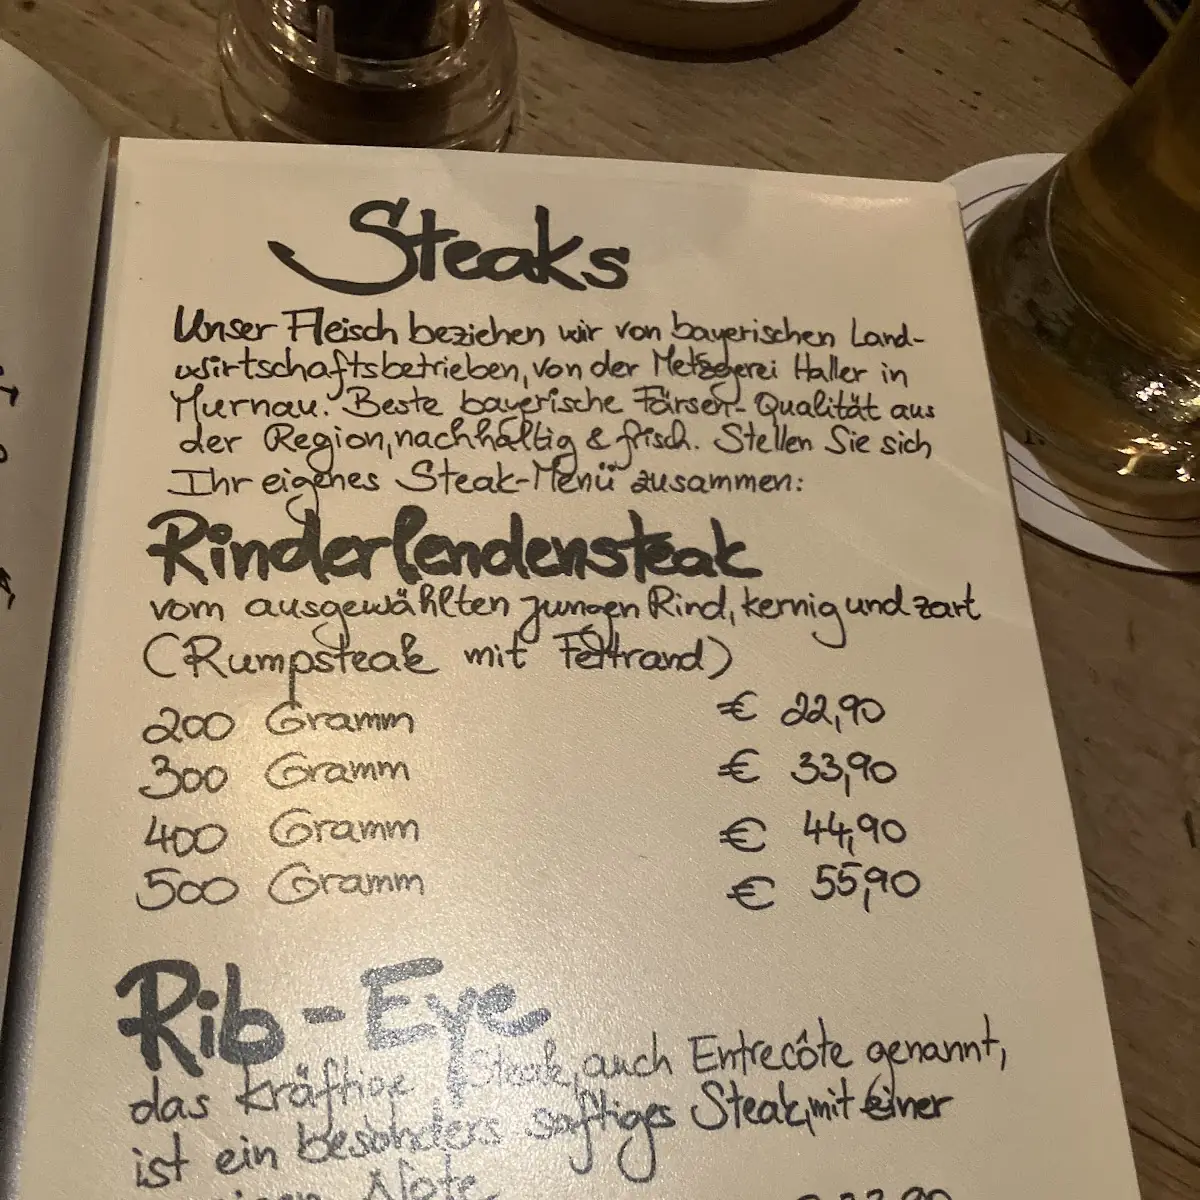 Steaks
Unser Fleisch beziehen wir von bayerischen Land-
wirtschaftsbetrieben, von der Metzgerei Haller in
Murnau. Beste bayerische Färsen-Qualität aus
der Region, nachhaltig & frisch. Stellen Sie sich
Ihr eigenes Steak-Menü zusammen:
Rinderlendensteak
vom ausgewählten jungen Rind, kernig und zart
(Rumpsteak mit Fettrand)
200 Gramm € 22,90
300 Gramm € 33,90
400 Gramm € 44,90
500 Gramm € 55,90
Rib-Eye
das kräftige Steak, auch Entrecôte genannt,
ist ein besonders saftiges Steak, mit einer
Note